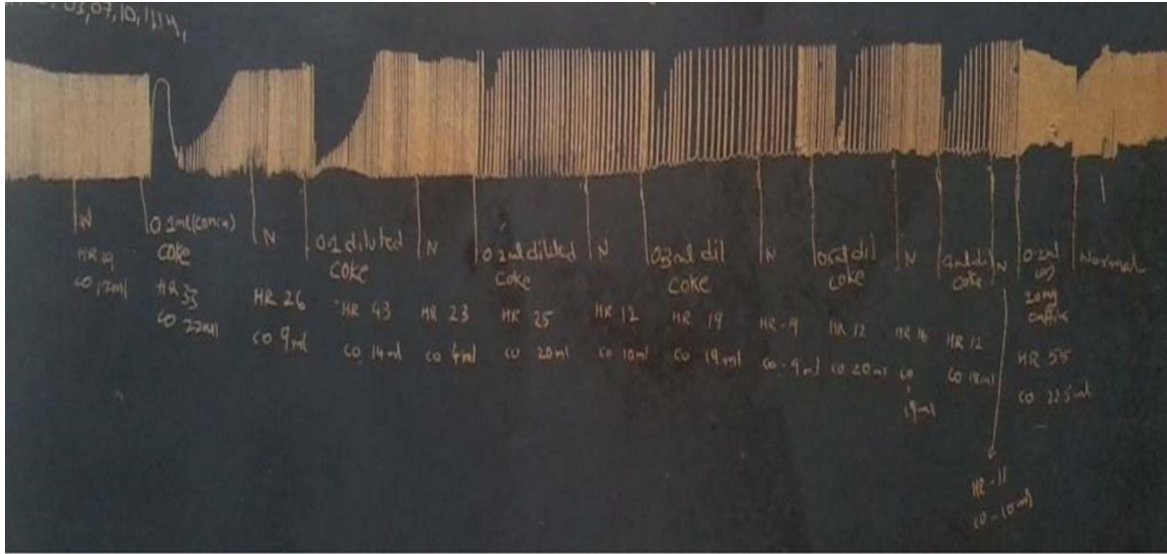 03,07,10,11,14,
N
HR
CO 12ml
0.1ml(conc)
coke
HR 33
CO 22ml
N
HR 26
CO 9ml
0.1 diluted
coke
HR 43
CO 14ml
N
HR 23
CO 6ml
0.2ml diluted
coke
HR 25
CO 20ml
N
HR 12
CO 10ml
0.3ml dil
coke
HR 19
CO 19ml
N
HR-9
CO-9ml
dil
coke
HR 12
CO 20ml
N
HR 16
CO
19ml
dil
coke
HR 12
CO 18ml
N
HR-11
CO-10ml
0.2ml
20mg
caffine
HR 55
CO 22.5ml
Normal